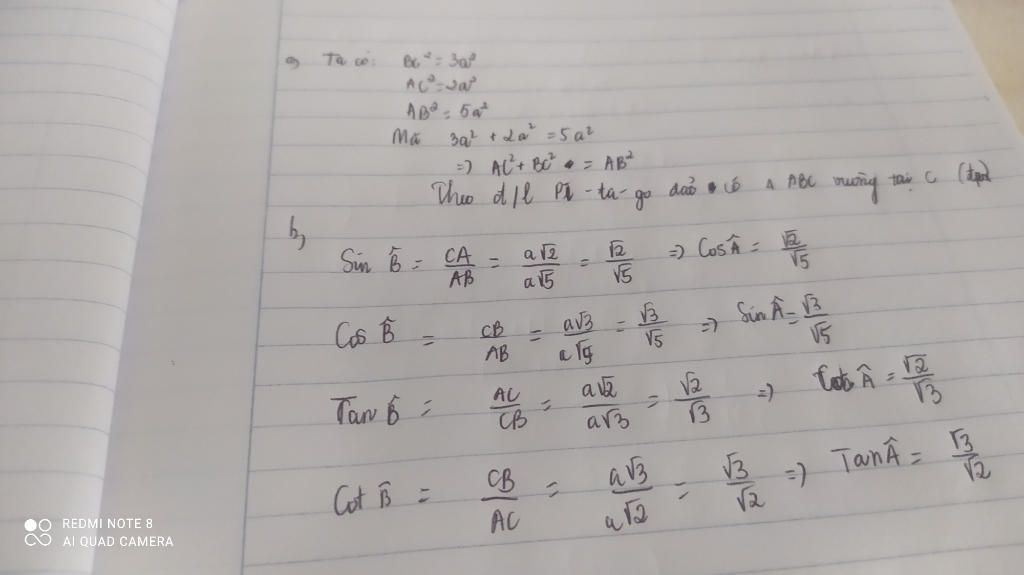 a) Ta có: BC² = 3a²
AC² = 2a²
AB² = 5a²
Mà 3a² + 2a² = 5a²
=> AC² + BC² = AB²
Theo đ/l Pi-ta-go đảo có Δ ABC vuông tại C
b,
Sin B̂ = CA/AB = a√2/a√5 = √2/√5 => Cos Â = √2/√5
Cos B̂ = CB/AB = a√3/a√5 = √3/√5 => Sin Â = √3/√5
Tan B̂ = AC/CB = a√2/a√3 = √2/√3 => Cot Â = √2/√3
Cot B̂ = CB/AC = a√3/a√2 = √3/√2 => Tan Â = √3/√2
REDMI NOTE 8
AI QUAD CAMERA